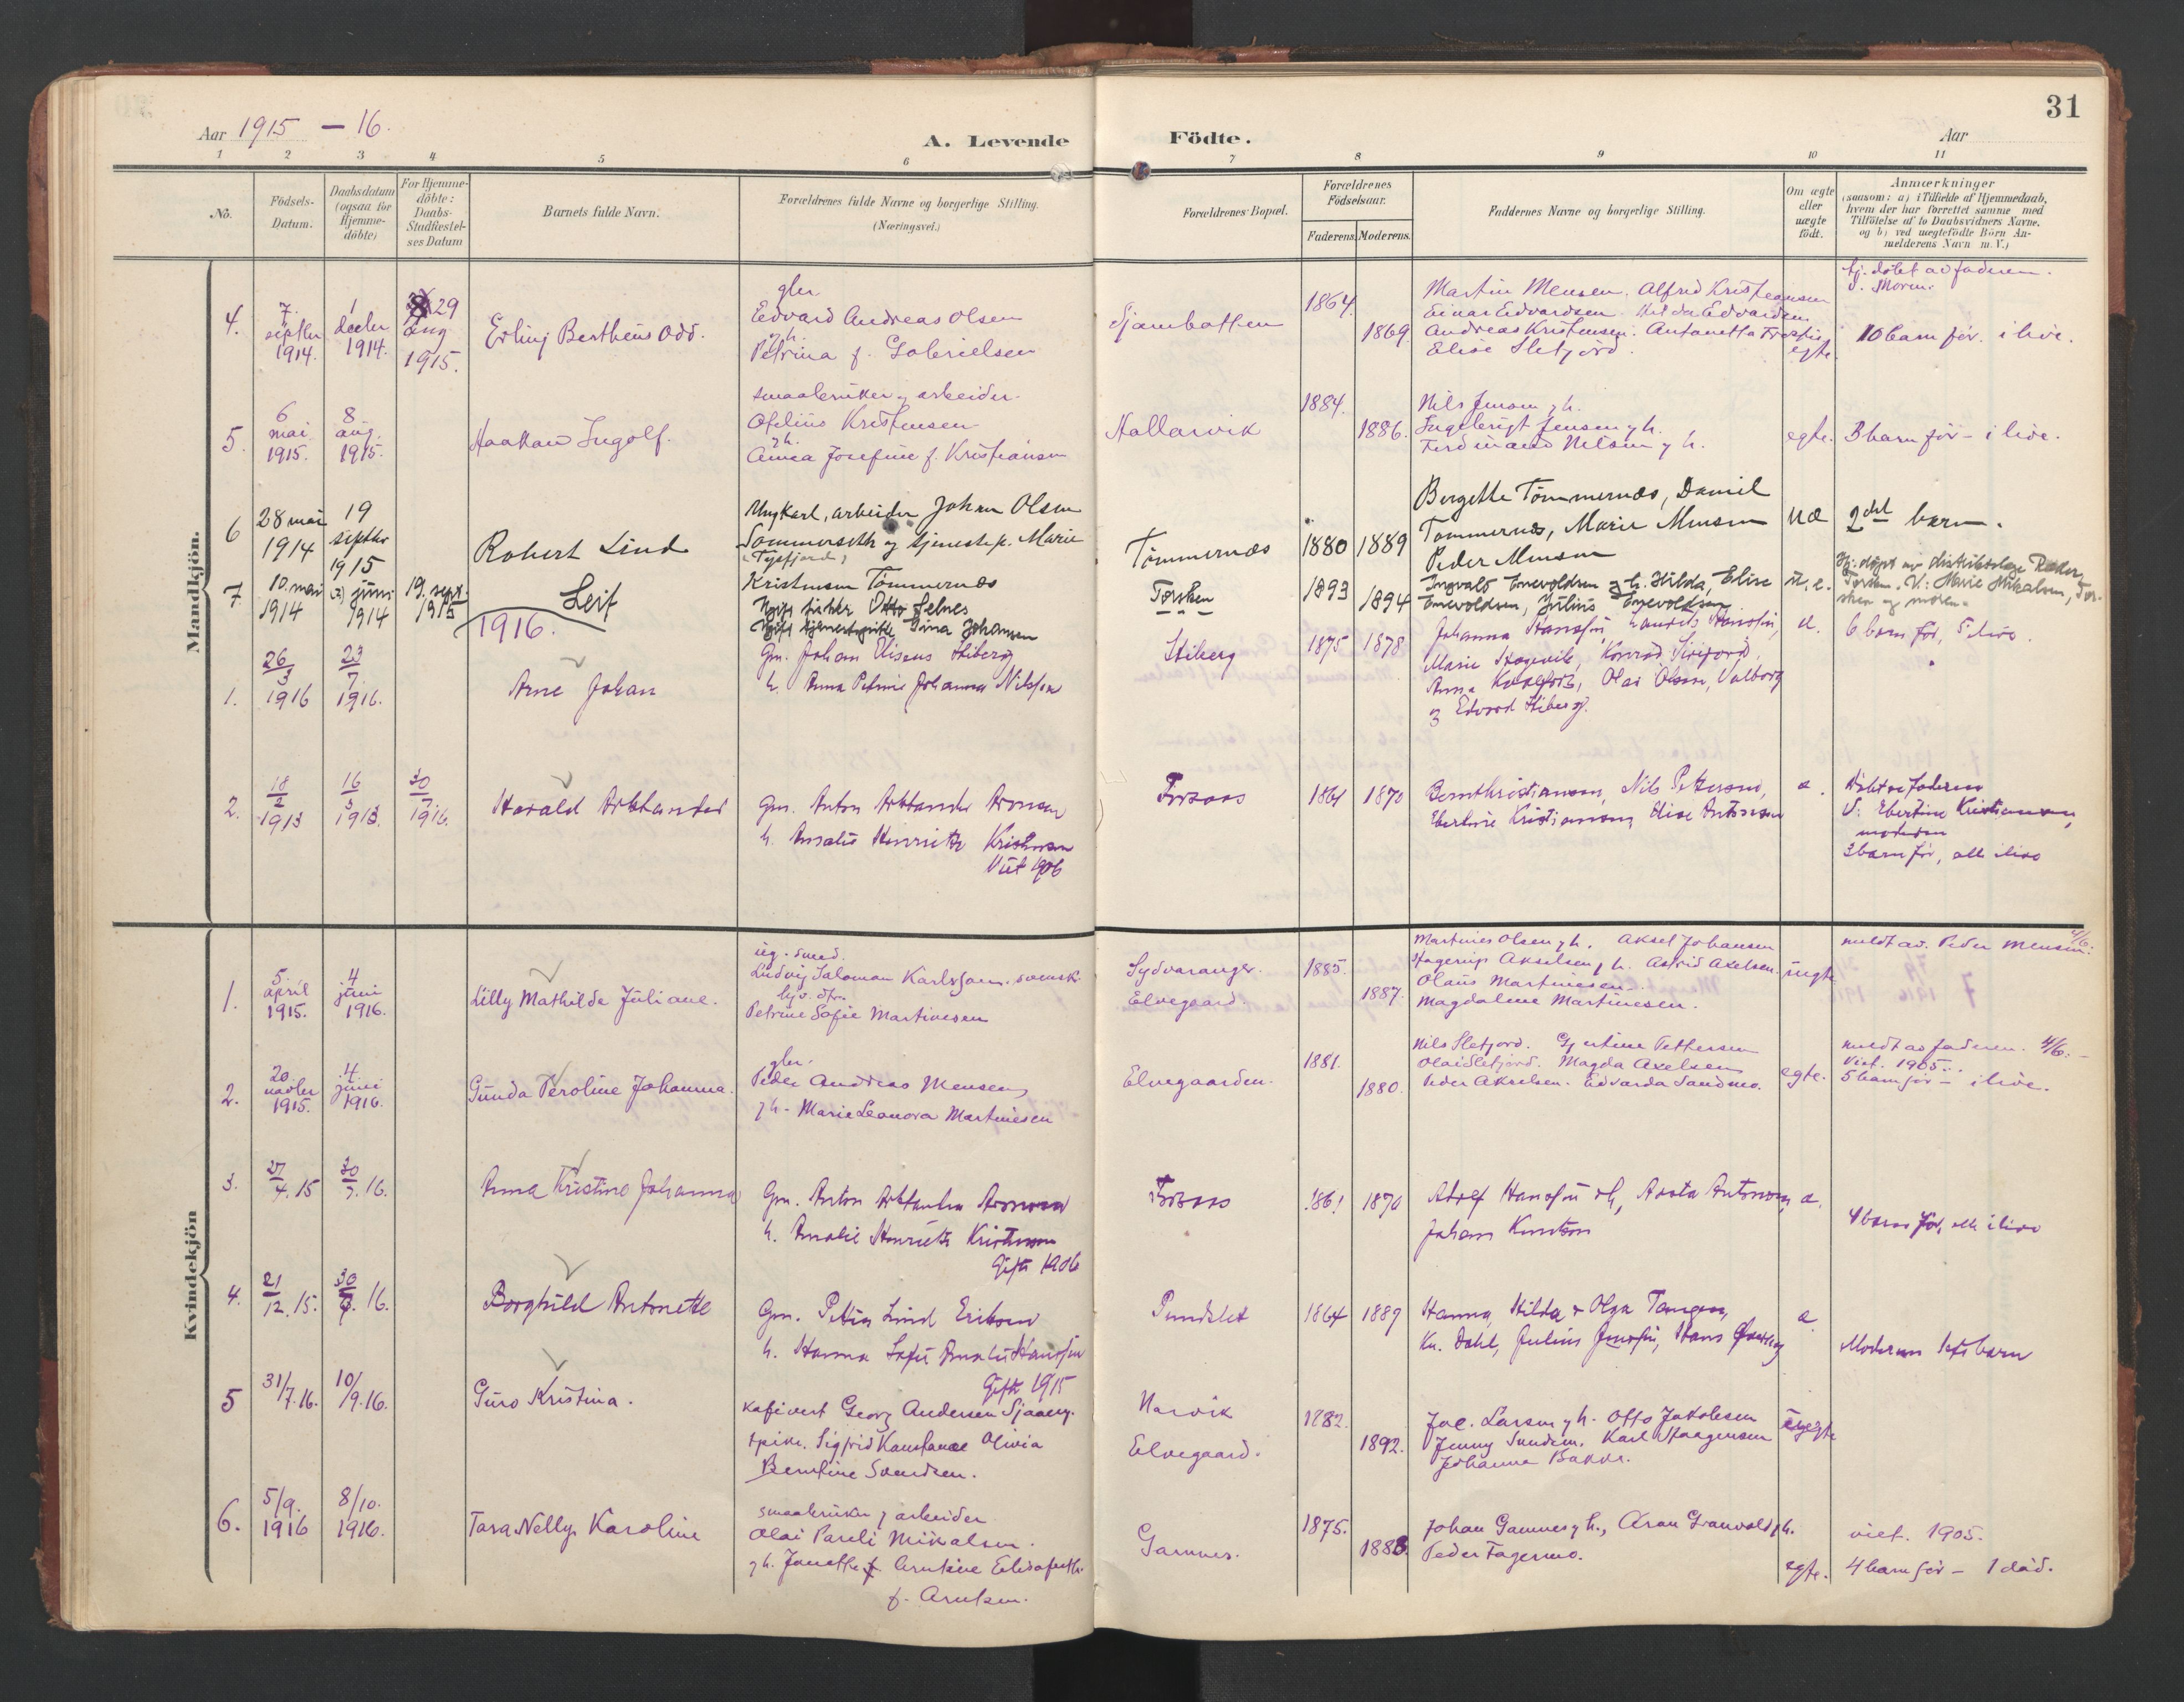 31
Aar 1915 — 16.
A. Levende Födte.
Aar
1 2 3 4 5 6 7 8 9 10 11
No.
Födsels-Datum.
Daabsdatum (ogsaa for Hjemme-döbte)
For Hjemme-döbte: Daabs-Stadfæstel-ses Datum
Barnets fulde Navn.
Forældrenes fulde Navne og borgerlige Stilling.
(Næringsvei.)
Forældrenes Bopæl.
Forældrenes Födselsaar.
Faderens. Moderens.
Faddernes Navne og borgerlige Stilling.
Om ægte eller uægte födt.
Anmærkninger
(saasom: a) i Tilfælde af Hjemmedaab,
hvem der har forrettet samme med
Tilföielse af to Daabsvidners Navne.
og b) ved uægtefödte Börn An-
melderens Navn m. V.)
Mandkjön.
4.
7. septbr 1914.
1 decbr 1914.
29 aug 1915.
Erling Bertheus Odd.
gbr.
Edvard Andreas Olsen
og h.
Petrina f. Gabrielsen
1864.
1869.
Martin Mensen. Alfred Kristiansen
Einar Edvardsen. Hilda Edvardsen
Andreas Kristensen. Antonetta
Elise Sletjord.
egte.
hj. döbt av faderen.
V. Moren.
10 barn för. i live.
5.
6 mai 1915.
8 aug. 1915.
Haakon Ingolf.
smaabruker og arbeider.
Ofelius Kristensen
og h.
Anna Josefine f. Kristiansen
Hallarvik
1884.
1886.
Nils Jensen og h.
Ingebrigt Jensen og h.
Ferdinand Nilsen og h.
egte.
3 barn för – i live.
6
28 mai 1914
19 septbr 1915
Robert Lind
Ungkarl, arbeider Johan Olsen
Sommerseth og tjenestep. Marie
(Tysfjord)
Kristensen Tömmernæs
Tömmernæs
1880
1889
Bergette Tömmernæs, Daniel
Tömmernæs, Marie Mensen
Peder Mensen
uæ
2det barn.
7.
10. mai 1914
juni 1914
19. sept. 1915
Leif
Ugift fisker Otto Selnes
Ugift tjenestepike Tina Johansen
Torsken
1893
1894
Ingvald Enevoldsen og h. Hilda, Elise
Enevoldsen, Julius Enevoldsen
u. e.
Hj. döpt av distriktslæge
Torsken. V: Marie Mikalsen, Tor-
sken og moren.
1916.
1.
26/3 1916
23/7 1916.
Arne Johan
Gm. Johan Elisæus Stiberg
h. Anna Petrine Johanna Nilssen
Stiberg
1875
1878
Johanna Hanssen, Laurits Hanssen,
Marie Skogvik, Konrad
Anna, Olai Olsen, Valborg
og Edvard Stiberg.
6 barn för, 5 live.
2.
18/2 1913
16/3 1913.
30/7 1916.
Harald Arktander
Gm. Anton Arktander Arnesen
h. Amalie Henriette Kristensen
Viet 1906
Forsaas
1861
1870
Bernt Kristiansen, Nils Pettersen,
Ebertine Kristiansen, Elise Antonsen
Döbt av faderen
V: Ebertine Kristiansen,
moderen
3 barn för, alle i live
Kvindekjön
1.
5. april 1915.
4 juni 1916.
Lilly Mathilde Juliane.
ug. smed.
Ludvig Salomon Karlsson. svensk.
Petrine Sofie Martinesen
Sydvaranger.
Elvegaard.
1885.
1887.
Martines Olsen og h. Aksel Johansen
Hagerup Akselsen og h. Astrid Axelsen.
Olaus Martinesen.
Magdalene Martinesen.
uegte
meldt av. Peder Mensen. 4/6.
2.
20 novbr 1915.
4 juni 1916.
Gunda Peroline Johanna.
gbr.
Peder Andreas Mensen,
og h. Marie Leonora Martinesen
Elvegaarden.
1881.
1880.
Nils Sletjord. Gjertine Pettersen
Olai Sletjord. Magda Axelsen
Peder Akselsen. Edvarda Sandmo.
egte.
meldt av faderen. 4/6.
Viet. 1905.
5 barn för – i live.
3.
27/4. 15
30/7. 16.
Anna Kristine Johanna
Gm. Anton Arktander Arnesen
h. Amalie Henriette Kristensen
Gifte 1906
Forsaas
1861
1870
Adolf Hanssen & h, Aasta Antonsen,
Johan Knutsen
4 barn för, alle i live
4.
21/12. 15.
30/7. 16.
Borghild Antonette
Gm. Petter Lind Eriksen
h. Hanna Sofie Amalie Hanssen
Gifte 1915
Pundslet
1864
1889
Hanna, Hilda & Olga Tangen,
Kr. Dahl, Julius Jenssen, Hans
Moderens 1ste barn
5
31/7. 16.
10/9. 16.
Guro Kristina.
kafevert Georg Andersen Sjaaeng.
spike. Sigfrid Konstanse Olivia
Berntine Svendsen.
Narvik
Elvegaard.
1882.
1892.
Joe. Larsen og h. Otto Jakobsen
Jenny Sundem. Karl Haagensen
Johanne Bakke.
uegte
6.
5/9. 1916
8/10. 1916.
Tora Nelly Karoline
smaabruker og arbeider
Olai Pareli Mikalsen.
og h. Janetthe Arntine Elisabeth.
f. Arntsen.
Gamnes.
1875.
1883.
Johan Gamnes og h., Aron Granvold og h.
Peder Fagermo.
egte.
viet. 1905.
4 barn för – 1 död.